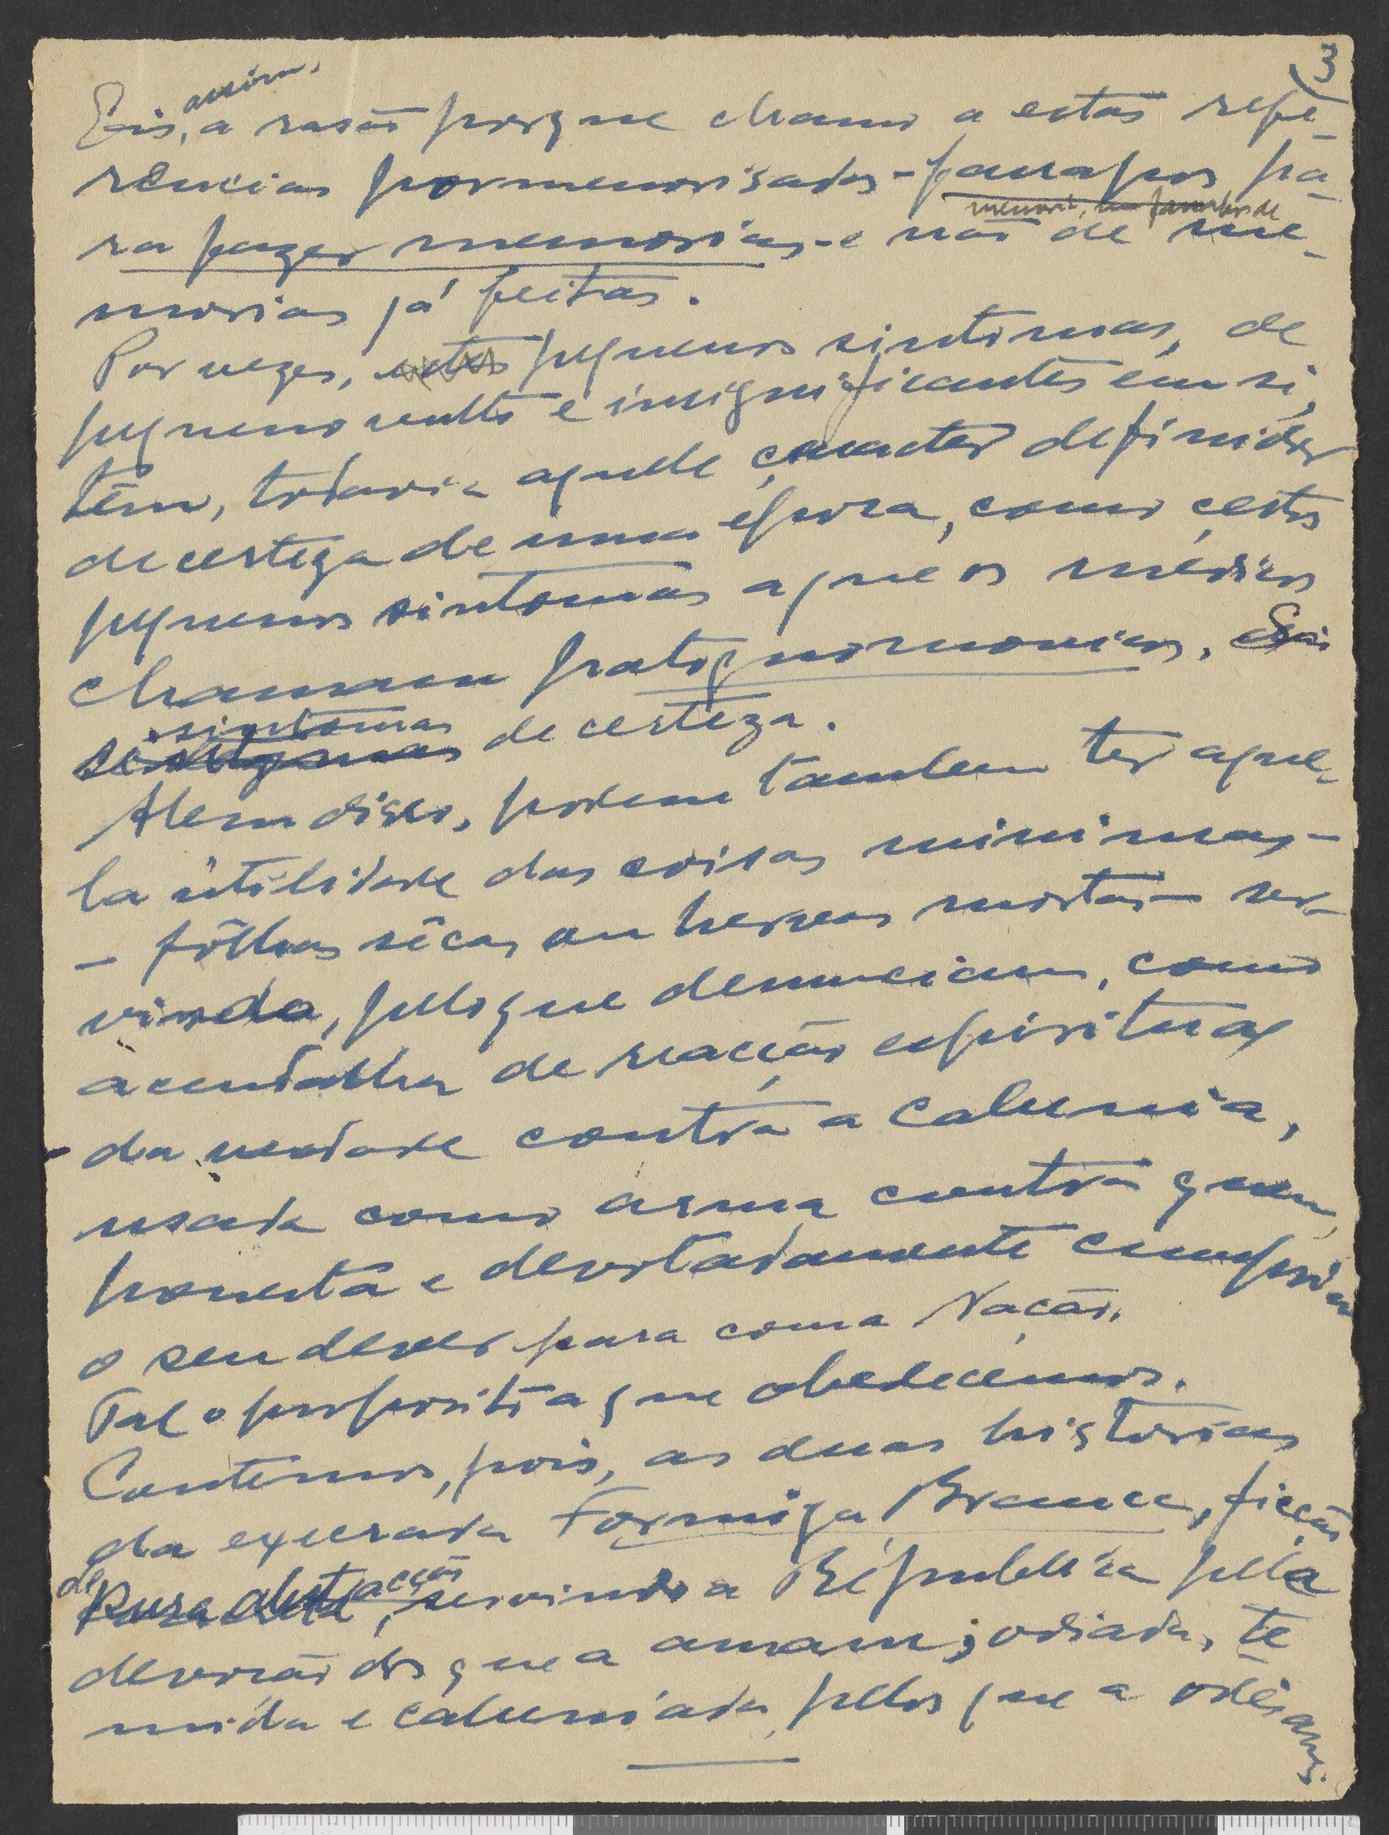 3
assim,
Eis, a rasão porque chamo a estas refe-
rencias pormenorisadas - farrapos pa-
ra fazer memorias - e não de me-
morias já feitas.
Por vezes, estes pequenos sintomas, de
pequeno vulto e insignificantes em si,
têm, todavia aquele caracter definidor
de certeza de uma época, como certos
pequenos sintomas a que os médicos
chamam patognomonicos. São
sintomas de certeza.
Alem disso, podem tambem ter aque-
la utilidade das coisas minimas -
- fôlhas sêcas ou hervas mortas - ser-
vindo, pelo que denunciam, como
acendalha de reacção espiritual
da verdade contra a calunia,
usada como arma contra quem,
honesta e devotadamente cumpriam
o seu dever para com a Nação.
Tal o proposito a que obedecemos.
Contemos, pois, as duas historias
da execrada Formiga Branca, ficção
de pura abstracção, servindo a Républica pela
devoção dos que a amam; odiada, te
mida e caluniada pelos que a odeiam.